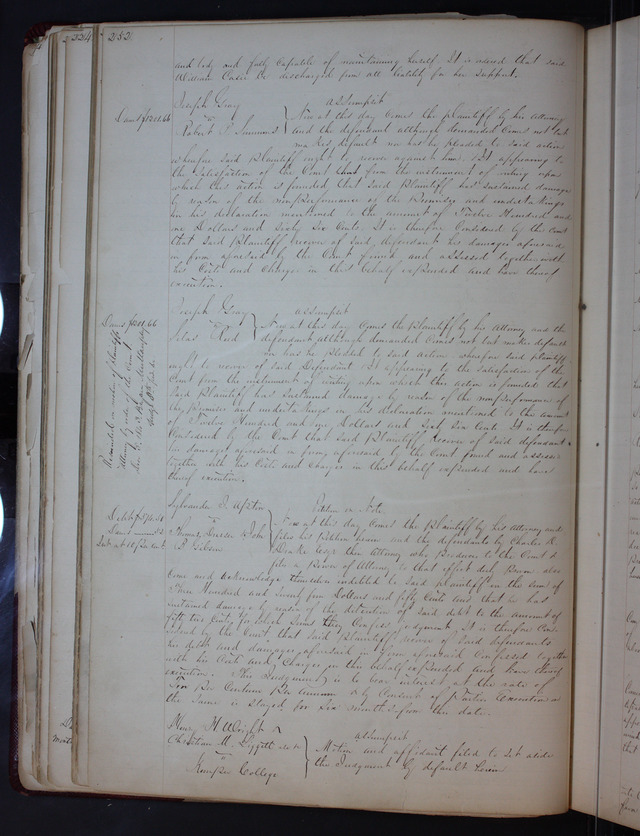 252
and body and fully capable of maintaining herself It is ordered that said
William Cabe be discharged from all liability for her support.
Joseph Gray
vs
Robert P. Simmons
Assumpsit
Dams $1201.66
Now at this day comes the plaintiff by his Attorney
and the defendant although demanded comes not but
makes default nor has he pleaded to said action
wherefore said plaintiff ought to recover against him. It appearing to
the satisfaction of the Court from the instrument of writing upon
which this action is founded that said plaintiff has sustained damage
by reason of the nonperformance of the promises and undertakings
in his declaration mentioned to the amount of Twelve Hundred and
one Dollars and Sixty Six Cents. It is therefore Considered by the Court
that said plaintiff recover of said defendant his damages aforesaid
in form aforesaid by the Court found and assessed together with
his Costs and Charges in this behalf expended and have thereof
execution.
Joseph Gray
vs
Silas Reed
Assumpsit
Dams $1201.66
Now at this day comes the plaintiff by his Attorney and the
defendant although demanded comes not but makes default
nor has he pleaded to said action wherefore said plaintiff
ought to recover of said Defendant It appearing to the satisfaction of the
Court from the instrument of writing upon which this action is founded that
said plaintiff has sustained damage by reason of the nonperformance of
the promises and undertakings in his declaration mentioned to the amount
of Twelve Hundred and one Dollars and Sixty Six Cents It is therefore
Considered by the Court that said plaintiff recover of said defendant
his damages aforesaid in form aforesaid by the Court found and assessed
together with his Costs and Charges in this behalf expended and have
thereof execution.
Petition in Note
Now at this day comes the plaintiff by his Attorney and
files his petition herein and the defendants by Charles
their Attorney who produces to the Court &
file a Power of Attorney to that effect duly proven also
come and acknowledge themselves indebted to said plaintiff in the sum of
Three Hundred and Dollars and fifty Cents and that he has
sustained damage by reason of the detention of said debt to the amount of
fifty two Cents for which sums they confess judgment It is therefore Con
sidered by the Court that said plaintiff recover of said defendants
his debt and damages aforesaid in form aforesaid confessed together
with his Costs and Charges in this behalf expended and have thereof
execution. This Judgment is to bear interest at the rate of
Ten Per Centum Per Annum & by Consent of parties execution on
the same is stayed for Six months from this date.
Henry H Wright
Christian M.
vs
Kemper College
Assumpsit
Motion and affidavit filed to set aside
the Judgment by default herein